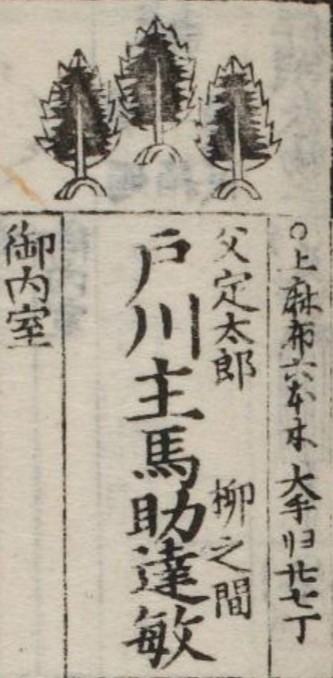 ○上麻布六本木 大手ヨリ廿七丁
父定太郎 柳之間
戸川主馬助達敏
御内室